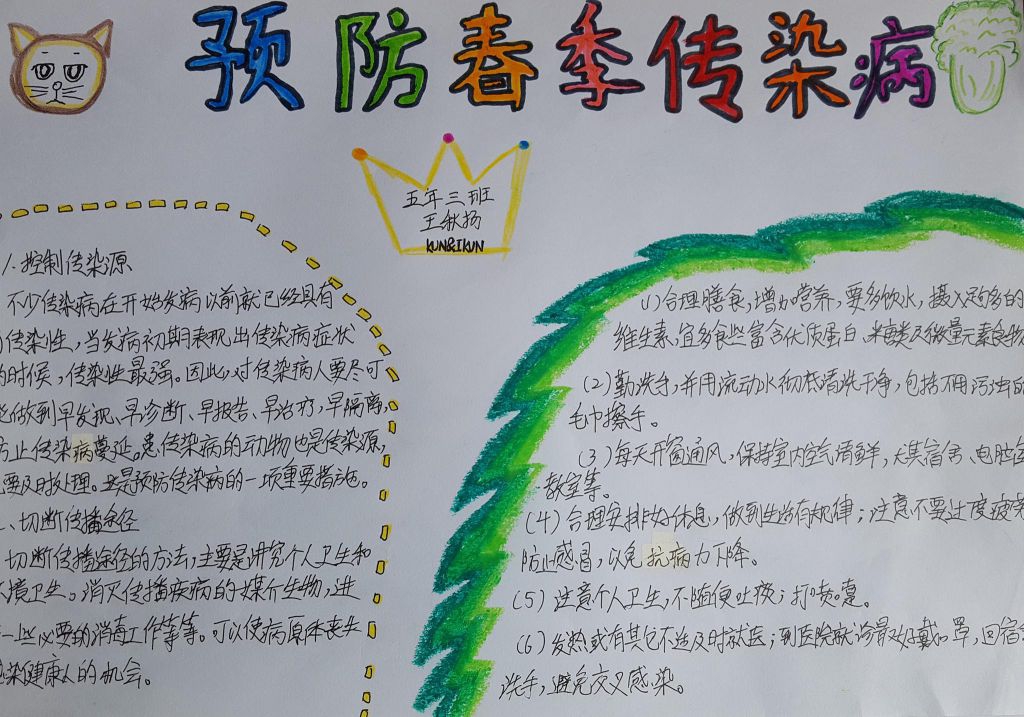 预防春季传染病
五年三班
王秋扬
KUN&IKUN
1、控制传染源
不少传染病在开始发病以前就已经具有
传染性，当发病初期表现出传染病症状
的时候，传染性最强。因此，对传染病人要尽可
能做到早发现、早诊断、早报告、早治疗，早隔离，
防止传染病蔓延。患传染病的动物也是传染源，
要及时处理。这是预防传染病的一项重要措施。
二、切断传播途径
切断传播途径的方法，主要是讲究个人卫生和
环境卫生。消灭传播疾病的媒介生物，进
一些必要的消毒工作等等。可以使病原体丧失
感染健康人的机会。
(1)合理膳食，增加营养，要多饮水，摄入足够多的
维生素，宜多食些富含优质蛋白、糖类及微量元素食物
(2)勤洗手，并用流动水彻底清洗干净，包括不用污浊的
毛巾擦手。
(3)每天开窗通风，保持室内空气清鲜，尤其宿舍、电脑
教室等。
(4)合理安排好休息，做到生活有规律；注意不要过度疲劳
防止感冒，以免抗病力下降。
(5)注意个人卫生，不随便吐痰；打喷嚏。
(6)发热或有其它不适及时就医；到医院就诊最好戴口罩，回宿
洗手，避免交叉感染。